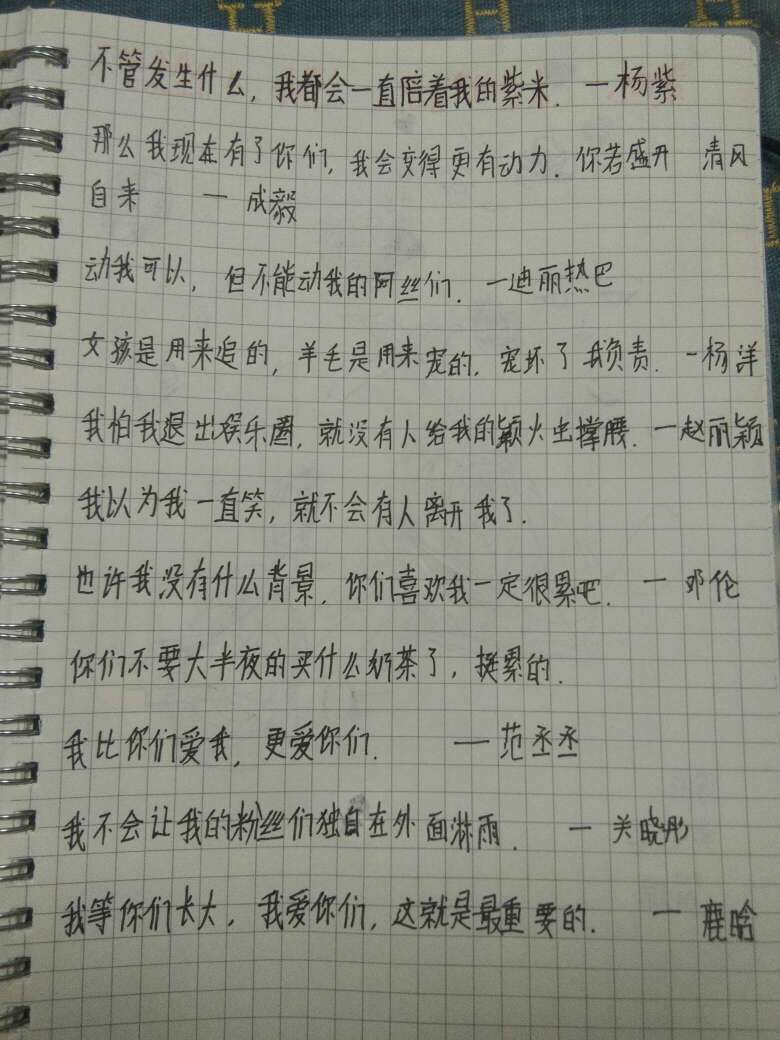 不管发生什么，我都会一直陪着我的紫米．一杨紫
那么我现在有了你们，我会变得更有动力．你若盛开 清风
自来 一成毅
动我可以，但不能动我的阿丝们．一迪丽热巴
女孩是用来追的，羊毛是用来宠的，宠坏了我负责．一杨洋
我怕我退出娱乐圈，就没有人给我的颖火虫撑腰．一赵丽颖
我以为我一直笑，就不会有人离开我了．
也许我没有什么背景，你们喜欢我一定很累吧．一邓伦
你们不要大半夜的买什么奶茶了，挺累的．
我比你们爱我，更爱你们．一范丞丞
我不会让我的粉丝们独自在外面淋雨．一关晓彤
我等你们长大，我爱你们，这就是最重要的．一鹿晗